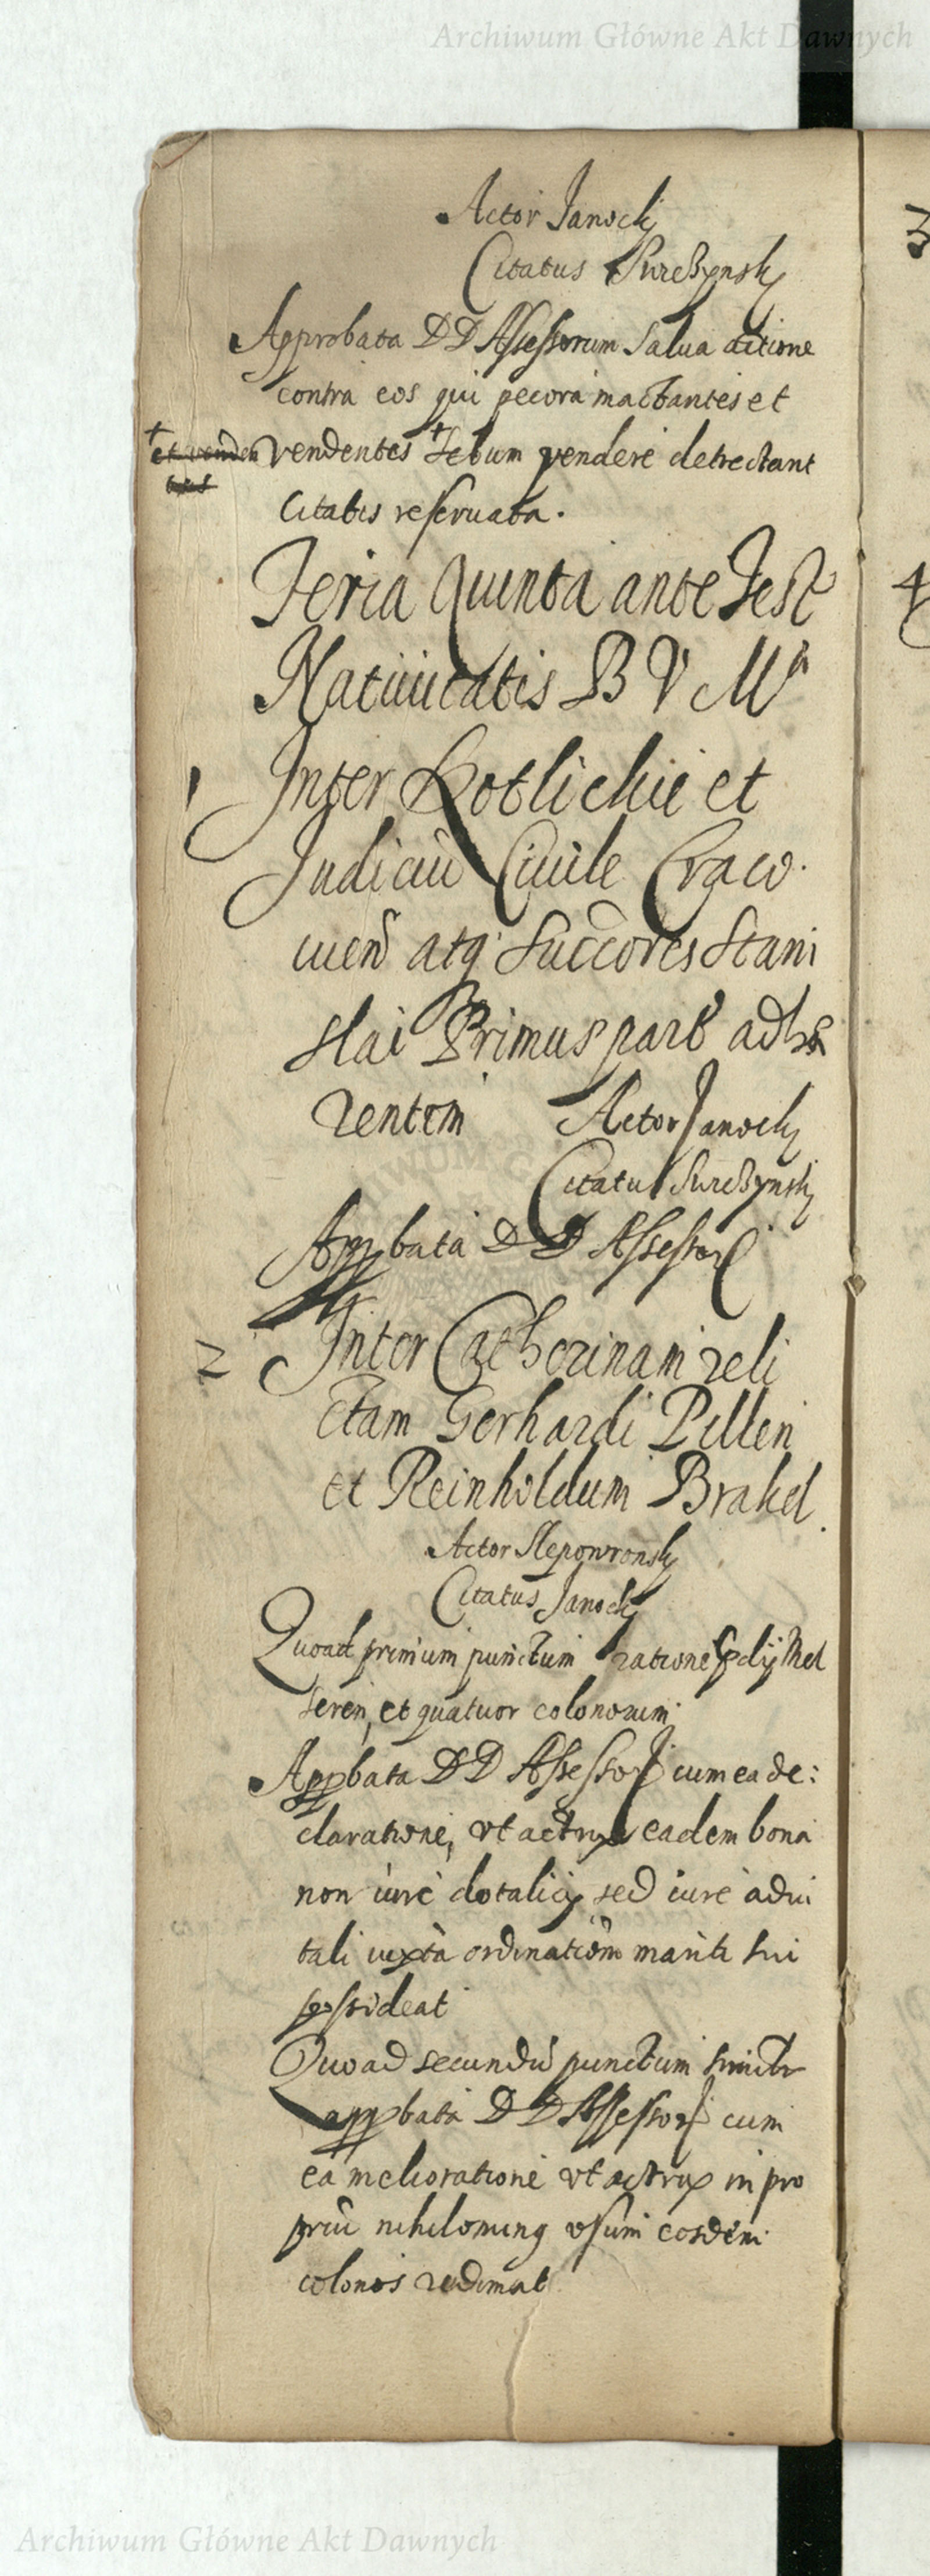 Archiwum Główne Akt Dawnych
Actor Janocky
Citatus Kurczynsky
Approbata DD Assessorum Salua actione
contra eos qui pecora mactantes et
+ et venden vendentes + Sebum vendere detrectant
tes
Citatis reservata.
Feria Quinta ante Fest
Natiuitatis B V M
1 Inter Kotlickie et
Judiciũ Ciuile Craco.
uien atq Succores Stani
slai Primus part adhæ
rentem Actor Janocky
Citatus Kurczynsky
Appbata DD Assessor
2 Inter Catherinam reli
ctam Gerhardi Pillen
et Reinholdum Brakel
Actor Slepowronsky
Citatus Janocky
Quoad primum punctum ratione
seren, et quatuor colonorum
Appbata DD Assessor cum ea de:
claratione, vt actrix eadem bona
non iure dotalicy sed iure adui
tali iuxta ordinatiõm mariti sui
possideat
Quoad secundũ punctum simtr
appbata DD Assessor cum
ea melioratione vt actrix in pro
priũ nihilominq vsum eosdem
colonos redimat
3
4
Archiwum Główne Akt Dawnych